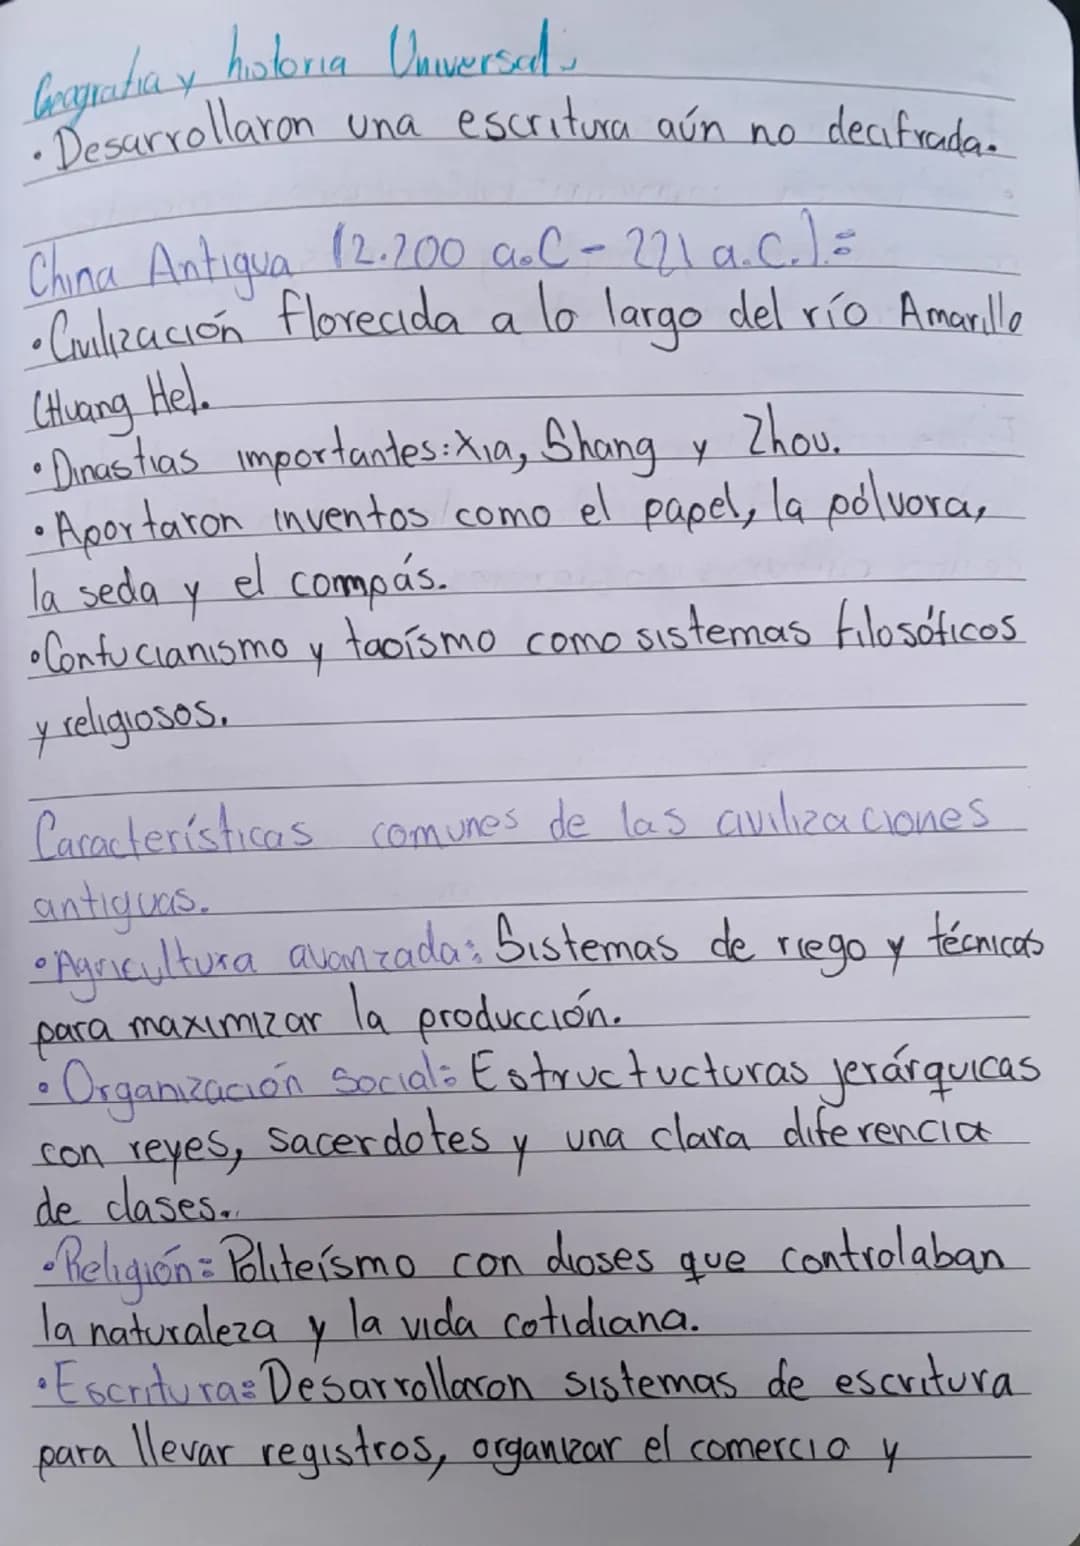 Geografía y historia Universal.
• Desarrollaron una escritura aún no decifrada.
China Antigua (2.200 a.C - 221 a.C.):
• Civilización florecida a lo largo del río Amarillo
(Huang He).
• Dinastias importantes: Xia, Shang y Zhou.
• Aportaron inventos como el papel, la pólvora,
la seda y el compás.
• Confucianismo y taoísmo como sistemas filosóficos
y religiosos.
Características comunes de las civilizaciones
antiguas.
• Agricultura avanzada: Sistemas de riego y técnicas
para maximizar la producción.
• Organización Social: Estructucturas jerárquicas
con reyes, sacerdotes y una clara diferencia
de clases..
• Religión: Politeísmo con dioses que controlaban
la naturaleza y la vida cotidiana.
• Escritura: Desarrollaron sistemas de escritura
para llevar registros, organizar el comercio y